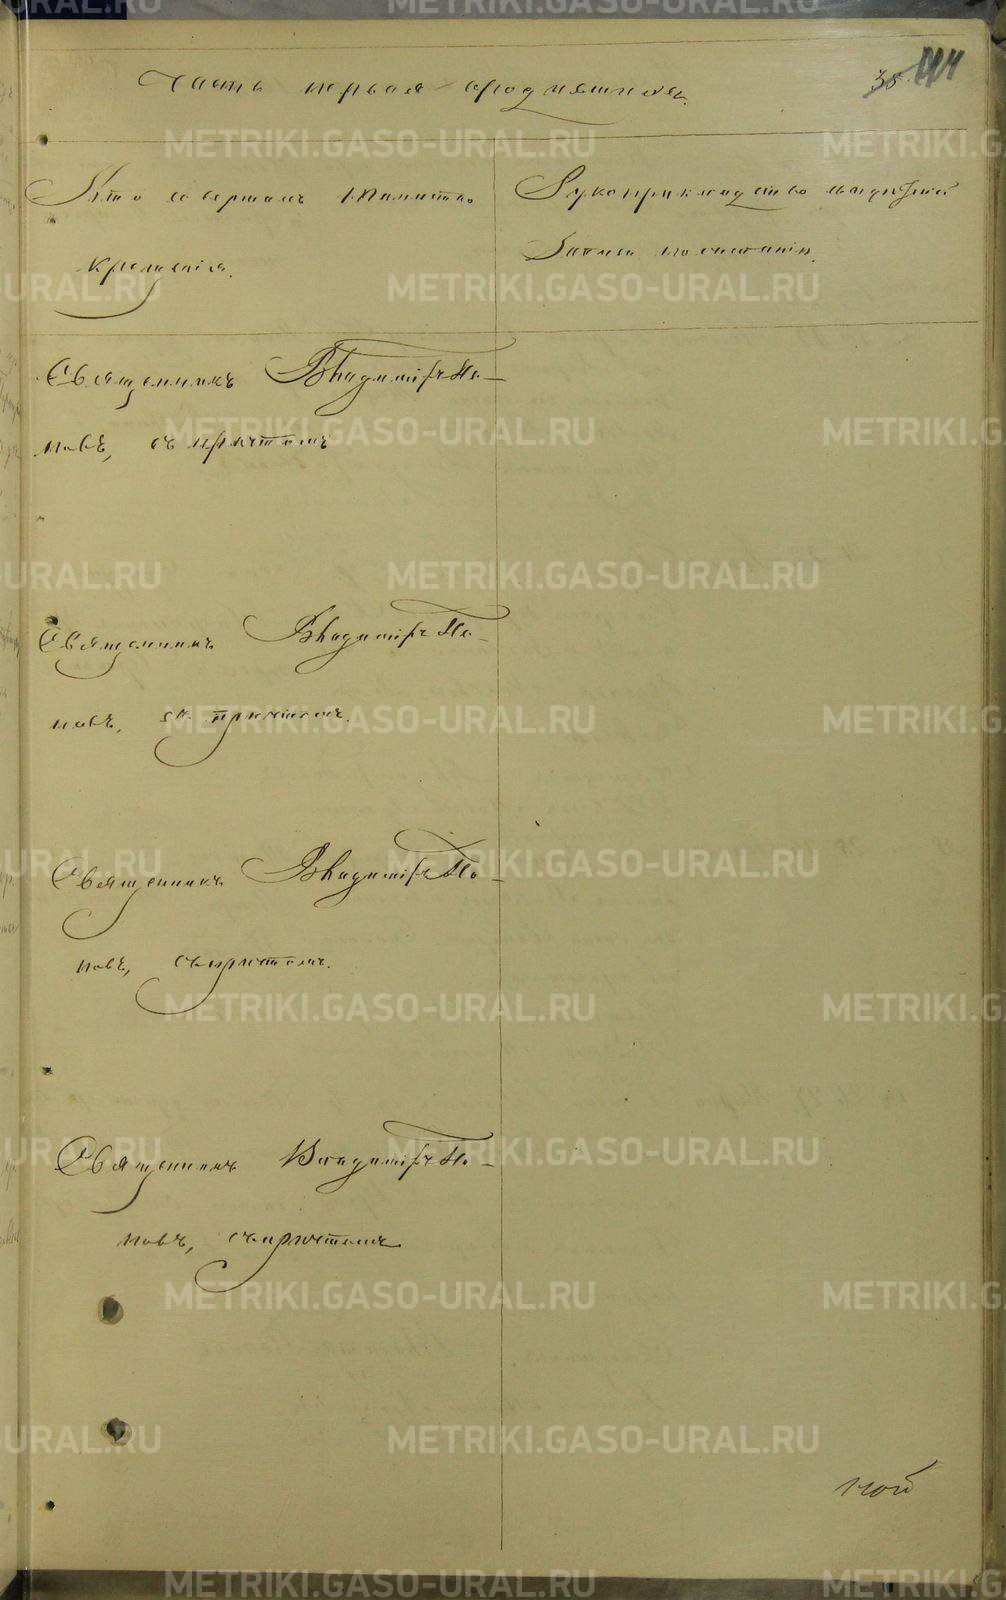 Часть первая о родившихся.
35
114
Кто совершалъ таинство
крещенія.
Рукоприкладство свидѣтелей
записи по желанію.
Священникъ Владимiръ По-
повъ, съ причтомъ
Священникъ Владимiръ По-
повъ, съ причтомъ.
Священникъ Владимiръ По-
повъ, съ причтомъ.
Священникъ Владимiръ По-
повъ, съ причтомъ
ной
METRIKI.GASO-URAL.RU